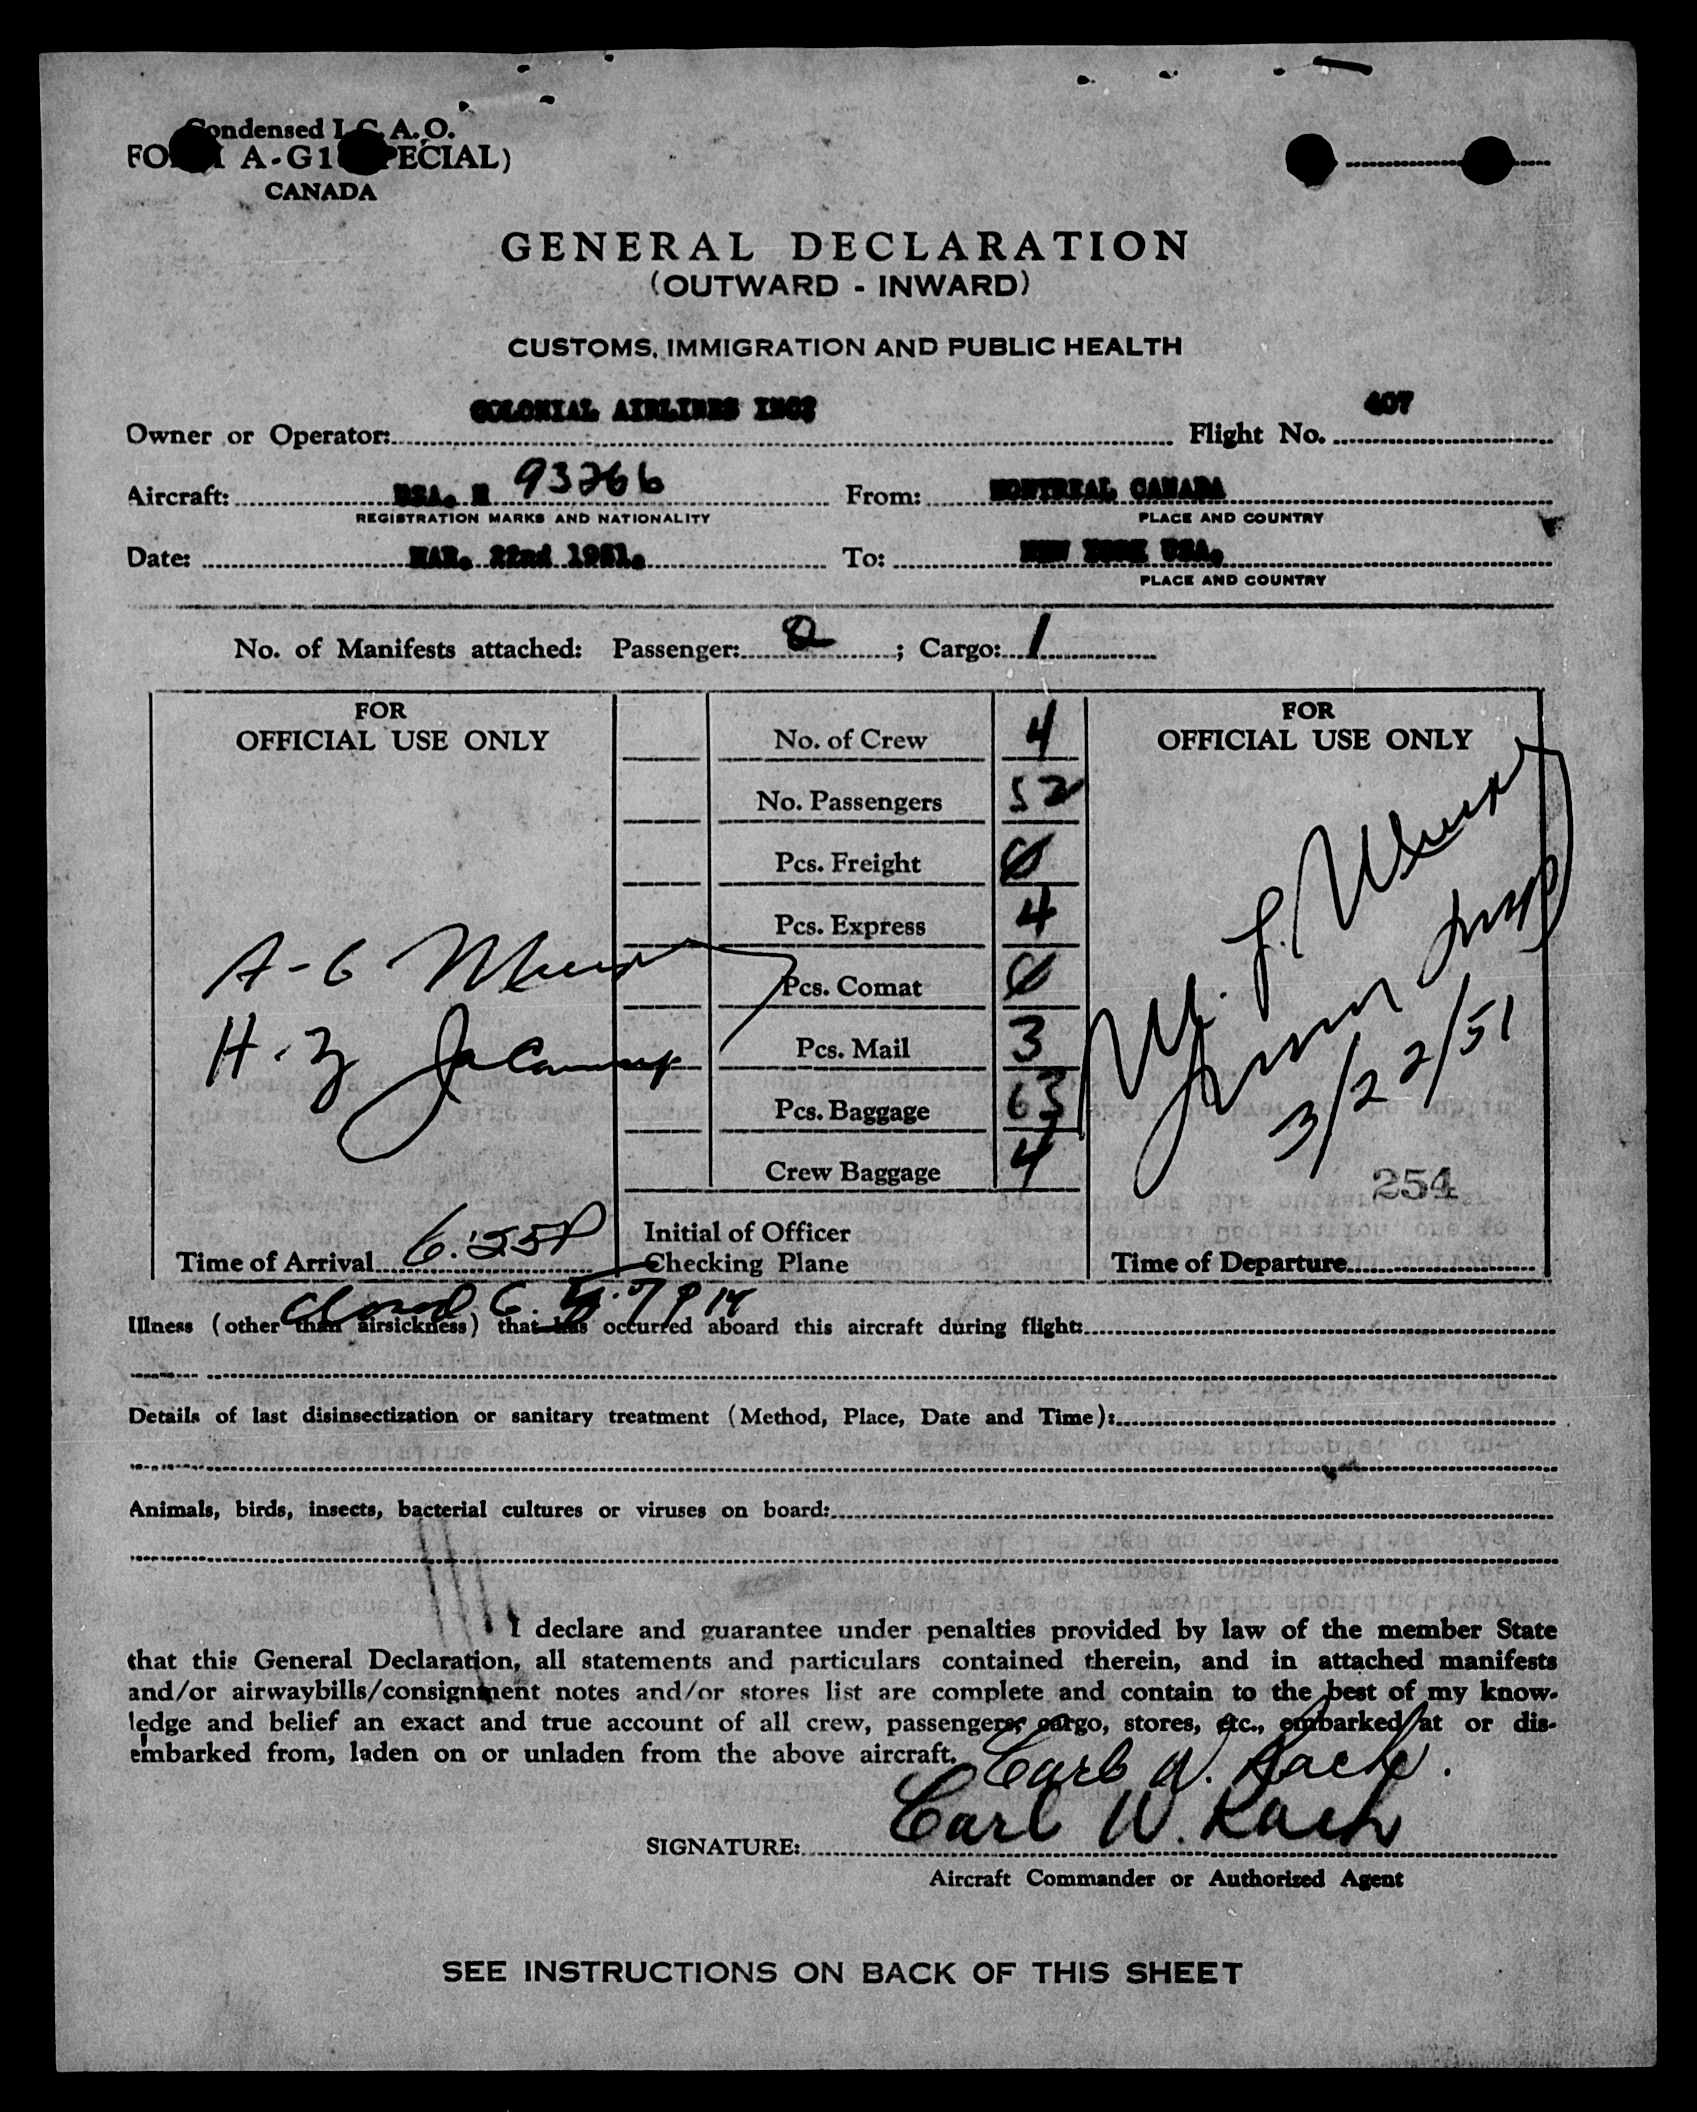 Condensed I.C.A.O.
FORM A-G1 (SPECIAL)
CANADA
GENERAL DECLARATION
(OUTWARD - INWARD)
CUSTOMS, IMMIGRATION AND PUBLIC HEALTH
Owner or Operator: COLONIAL AIRLINES INC. Flight No. 407
Aircraft: USA. N 93266 From: MONTREAL CANADA
REGISTRATION MARKS AND NATIONALITY PLACE AND COUNTRY
Date: MAR. 22nd 1951. To: NEW YORK USA.
PLACE AND COUNTRY
No. of Manifests attached: Passenger: 2 ; Cargo: 1
FOR
OFFICIAL USE ONLY
A-6
H-3
Time of Arrival 6:25P
closed
No. of Crew 4
No. Passengers 52
Pcs. Freight 0
Pcs. Express 4
Pcs. Comat 0
Pcs. Mail 3
Pcs. Baggage 63
Crew Baggage 4
Initial of Officer
Checking Plane
FOR
OFFICIAL USE ONLY
Insp
3/22/51
254
Time of Departure
Illness (other than airsickness) that has occurred aboard this aircraft during flight:
Details of last disinsectization or sanitary treatment (Method, Place, Date and Time):
Animals, birds, insects, bacterial cultures or viruses on board:
I declare and guarantee under penalties provided by law of the member State
that this General Declaration, all statements and particulars contained therein, and in attached manifests
and/or airwaybills/consignment notes and/or stores list are complete and contain to the best of my know-
ledge and belief an exact and true account of all crew, passengers, cargo, stores, etc., embarked at or dis-
embarked from, laden on or unladen from the above aircraft.
Carl W.
SIGNATURE: Carl W.
Aircraft Commander or Authorized Agent
SEE INSTRUCTIONS ON BACK OF THIS SHEET